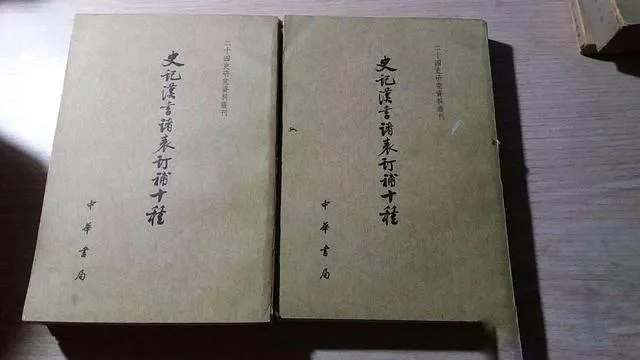 二十四史研究資料叢刊
史記漢書諸表訂補十種
中華書局
二十四史研究資料叢刊
史記漢書諸表訂補十種
中華書局